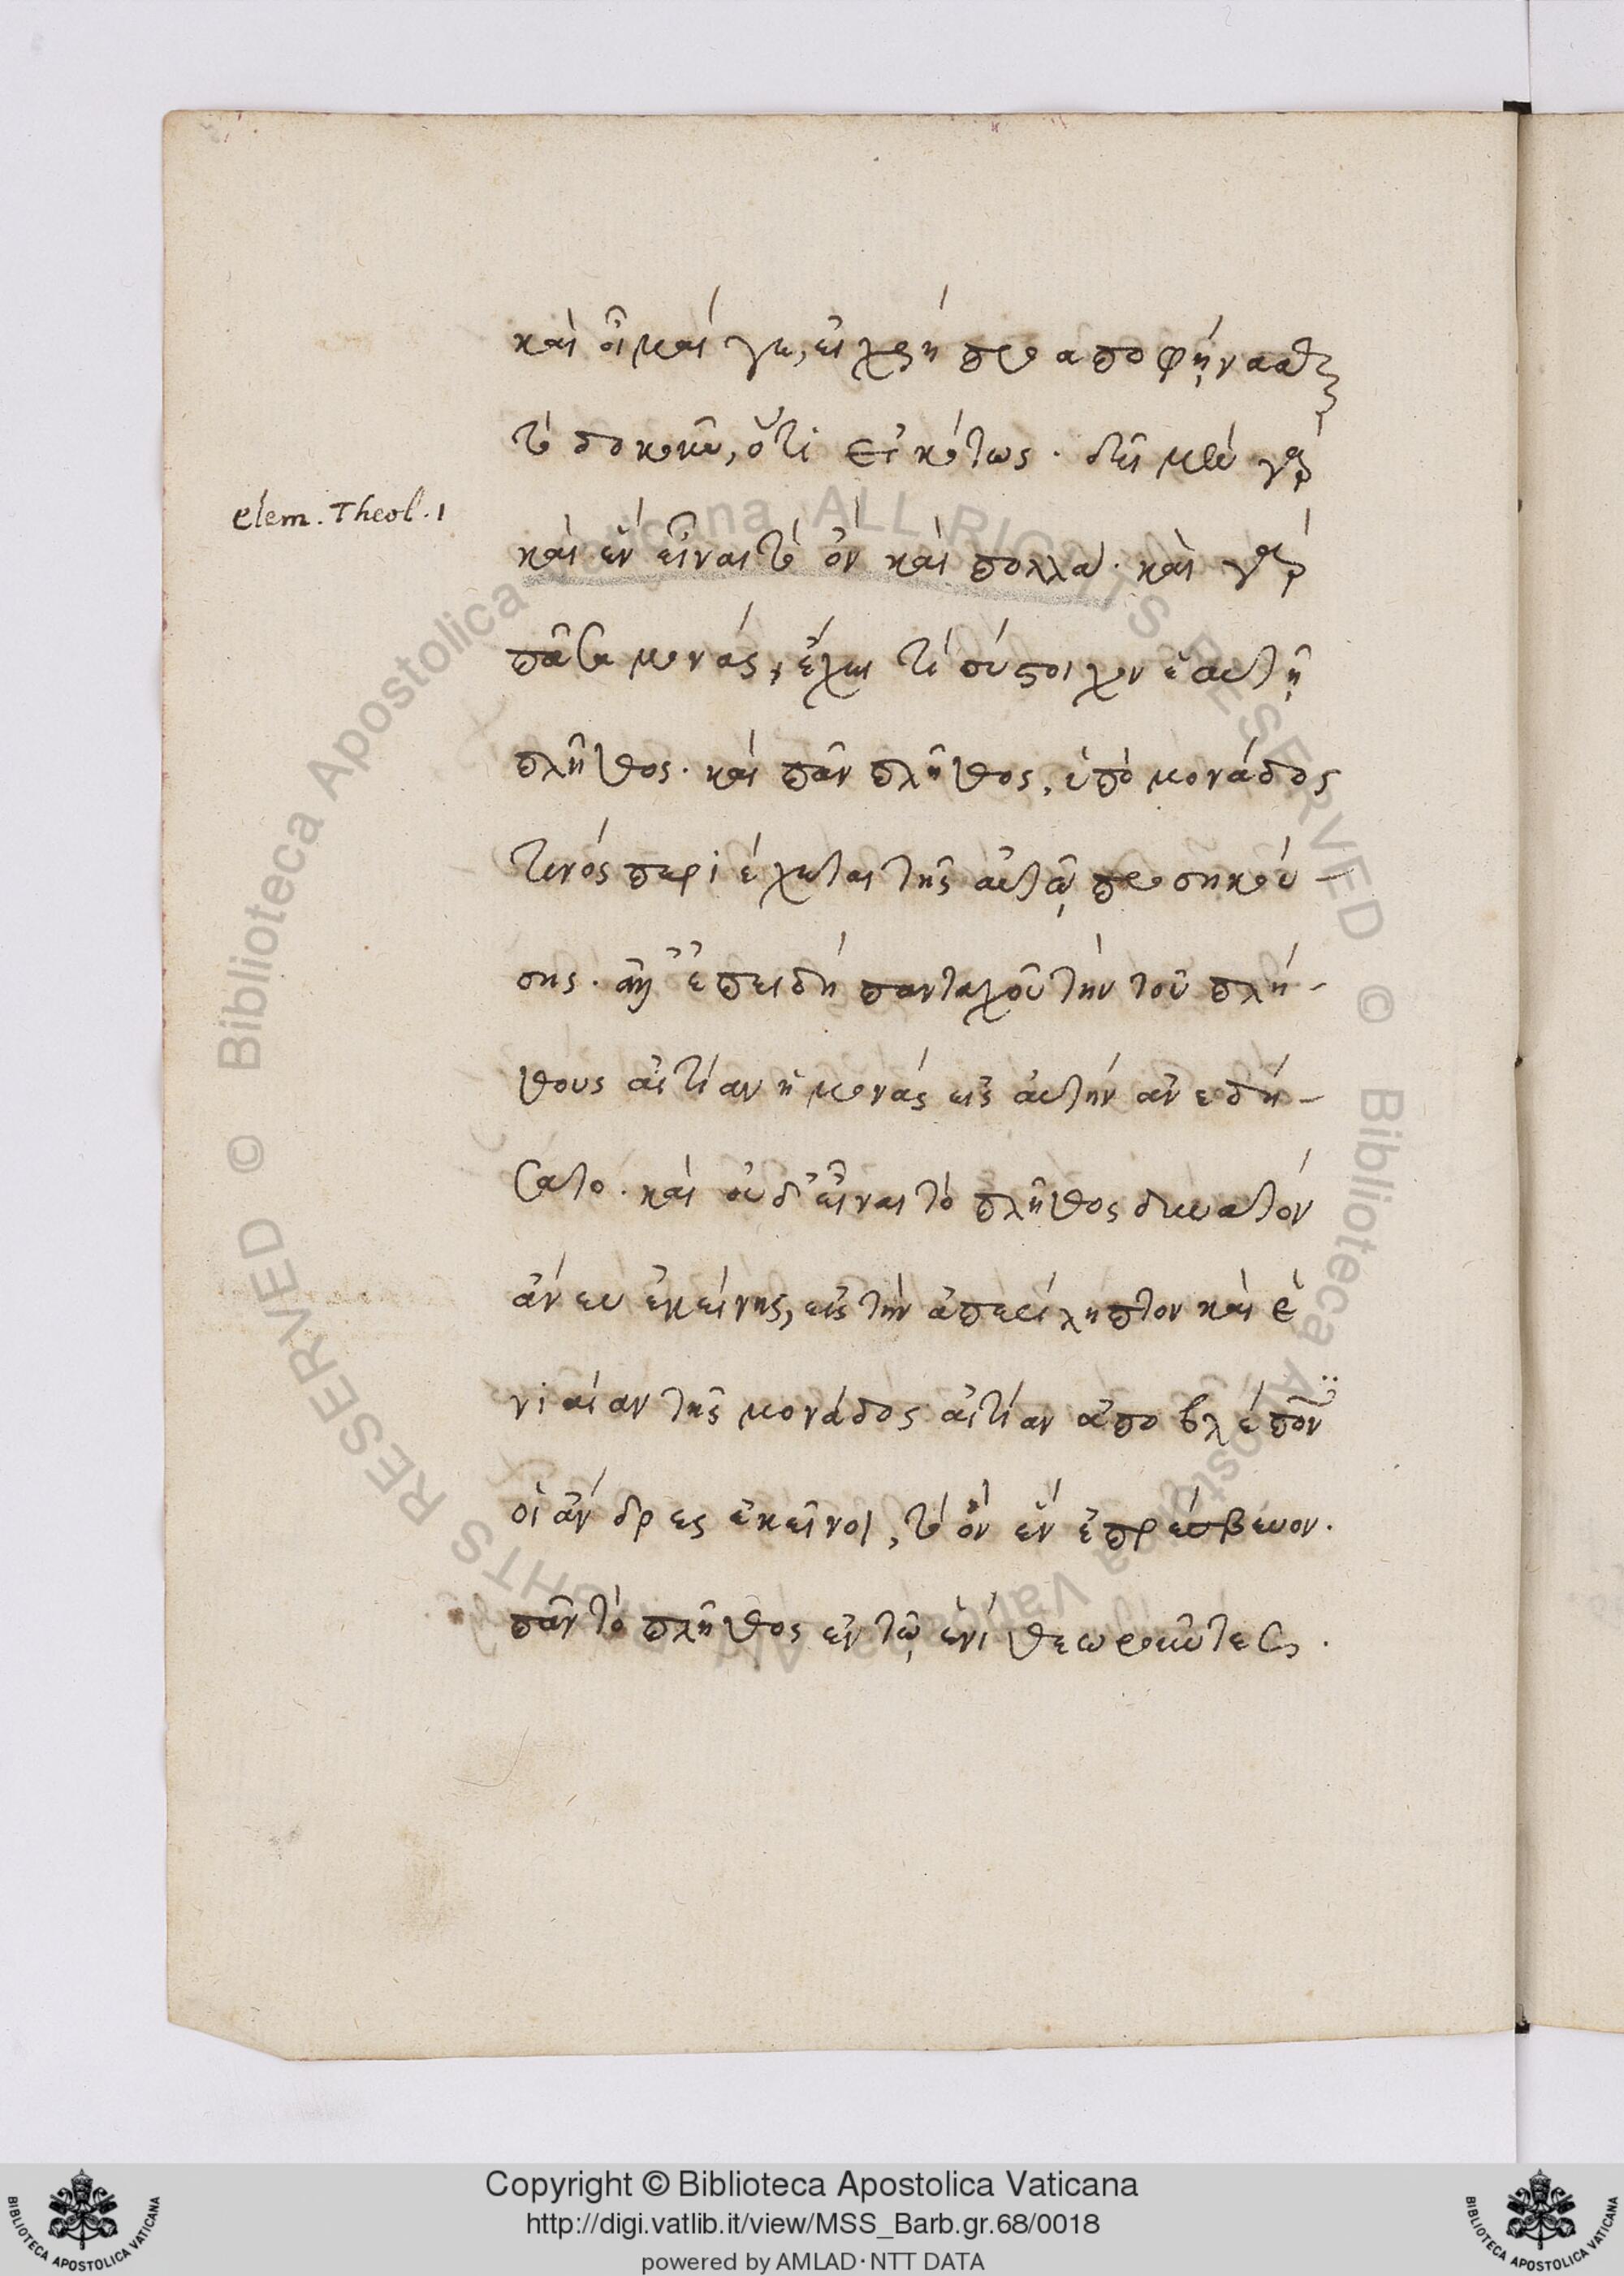 καὶ οἶμαί γε, εἰ χρή προαποφήνασθαι
τὸ δοκοῦν, ὅτι εἰκότως. δεῖ μὲν γάρ
elem. Theol. 1
καὶ ἓν εἶναι τὸ ὄν καὶ πολλά. καὶ γάρ
πᾶσα μονάς, ἔχει τί σύστοιχον ἑαυτῇ
πλῆθος. καὶ πᾶν πλῆθος, ὑπὸ μονάδος
τινός περιέχεται τῆς αὐτῷ προσηκού-
σης. ἐπειδή πανταχοῦ τὴν τοῦ πλή-
θους αἰτίαν ἡ μονάς εἰς αὐτήν ἀνεδή-
σατο. καὶ οὐδ' εἶναι τὸ πλῆθος δυνατόν
ἄνευ ἐκείνης, εἰς τὴν ἀπερίληπτον καὶ ἑ
νιαίαν τῆς μονάδος αἰτίαν ἀποβλέπον
οἱ ἄνδρες ἐκεῖνοι, τὸ ὄν ἕν ἐπρέσβευον.
πᾶν τὸ πλῆθος ἐν τῷ ἑνί θεωροῦντες.
Copyright © Biblioteca Apostolica Vaticana
http://digi.vatlib.it/view/MSS_Barb.gr.68/0018
powered by AMLAD·NTT DATA
BIBLIOTECA APOSTOLICA VATICANA
BIBLIOTECA APOSTOLICA VATICANA